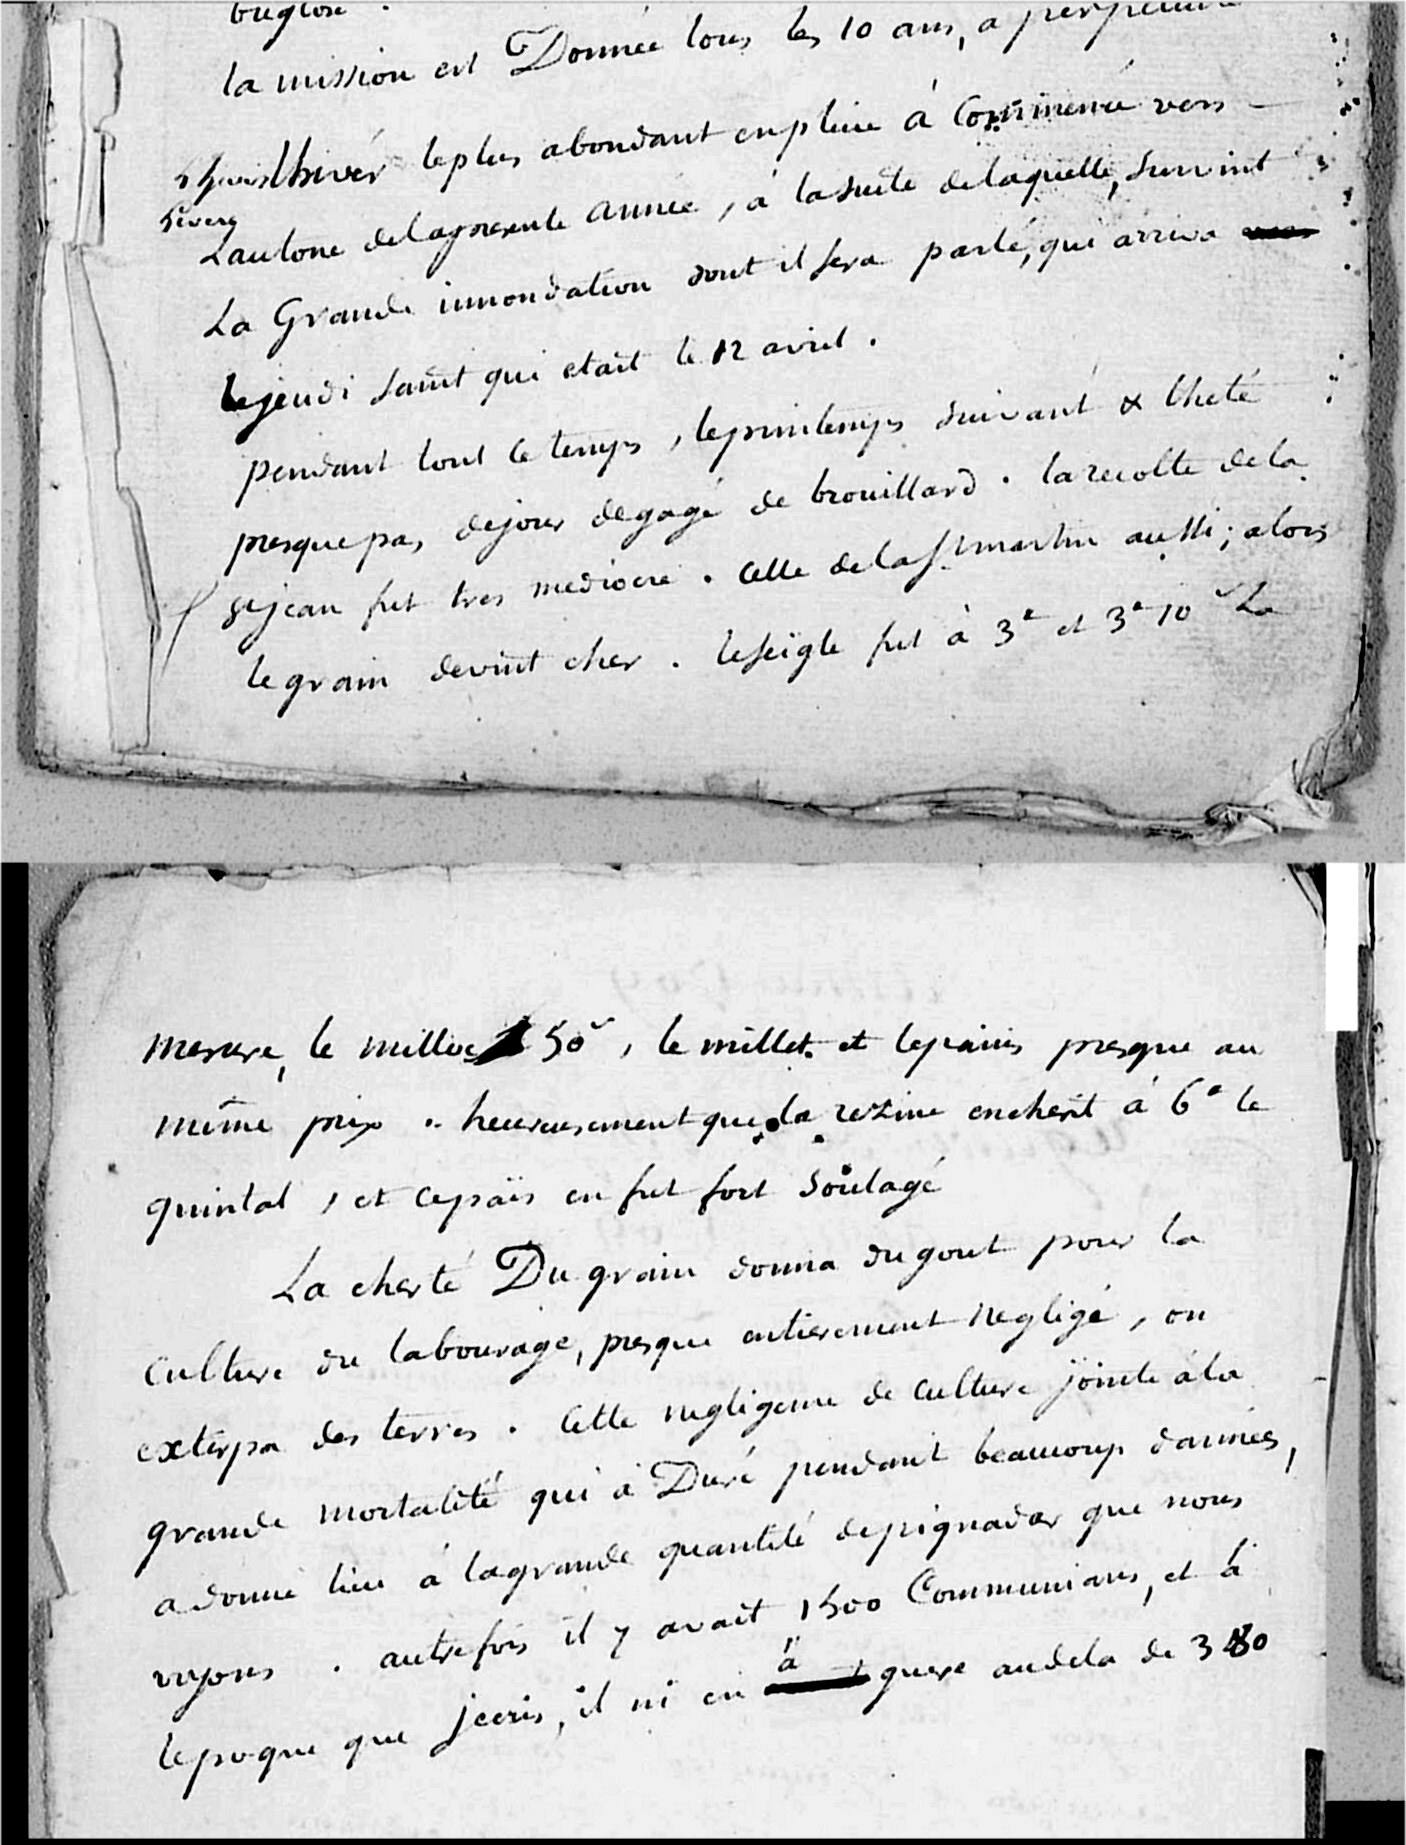 buglose.
la mission est Donnée tous les 10 ans, a perpetuité
Lhivér le plus abondant en pluie á Commencé vers
hivers
Lautone de la presente année, á la suite de laquelle, survint
La Grande innondation dont il sera parlé, qui arriva
le jeudi saint qui etait le 12 avril.
pendant tout ce temps, le printemps suivant & lheté
presque pas de jour degagé de brouillard. la recolte de la
St jean fut tres mediocre. Celle de la St martin aussi; alors
le grain devint cher. le seigle fut á 3ᵗ et 3ᵗ 10ˢ La
mesure, le milloc 50ˢ, le millet et le panis presque au
même prix. heureusement que la rezine encherit á 6ᵗ le
quintal, et ce païs en fut fort soulagé
La cherté Du grain donna du gout pour la
Culture du labourage, presque entierement negligé, on
exterpa des terres. Cette negligence de culture jointe á la
grande mortalité qui á Duré pendant beaucoup dannées,
a donné lieu á la grande quantité de pignadar que nous
voyons. autrefois il y avait 1500 Communians, et á
lepoque que jecris, il ni en á guere audela de 380